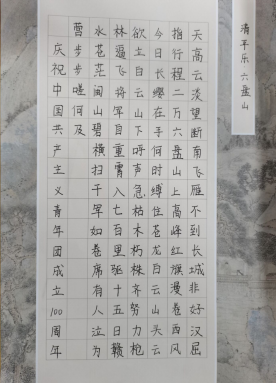 清平乐 六盘山
天高云淡望断南飞雁不到长城非好汉屈
指行程二万六盘山上高峰红旗漫卷西风
今日长缨在手何时缚住苍龙白云山头云
欲立白云山下呼声急枯木朽株齐努力枪
林逼飞将军自重霄入七百里驱十五日赣
水苍茫闽山碧横扫千军如卷席有人泣为
营步步嗟何及
庆祝中国共产主义青年团成立100周年